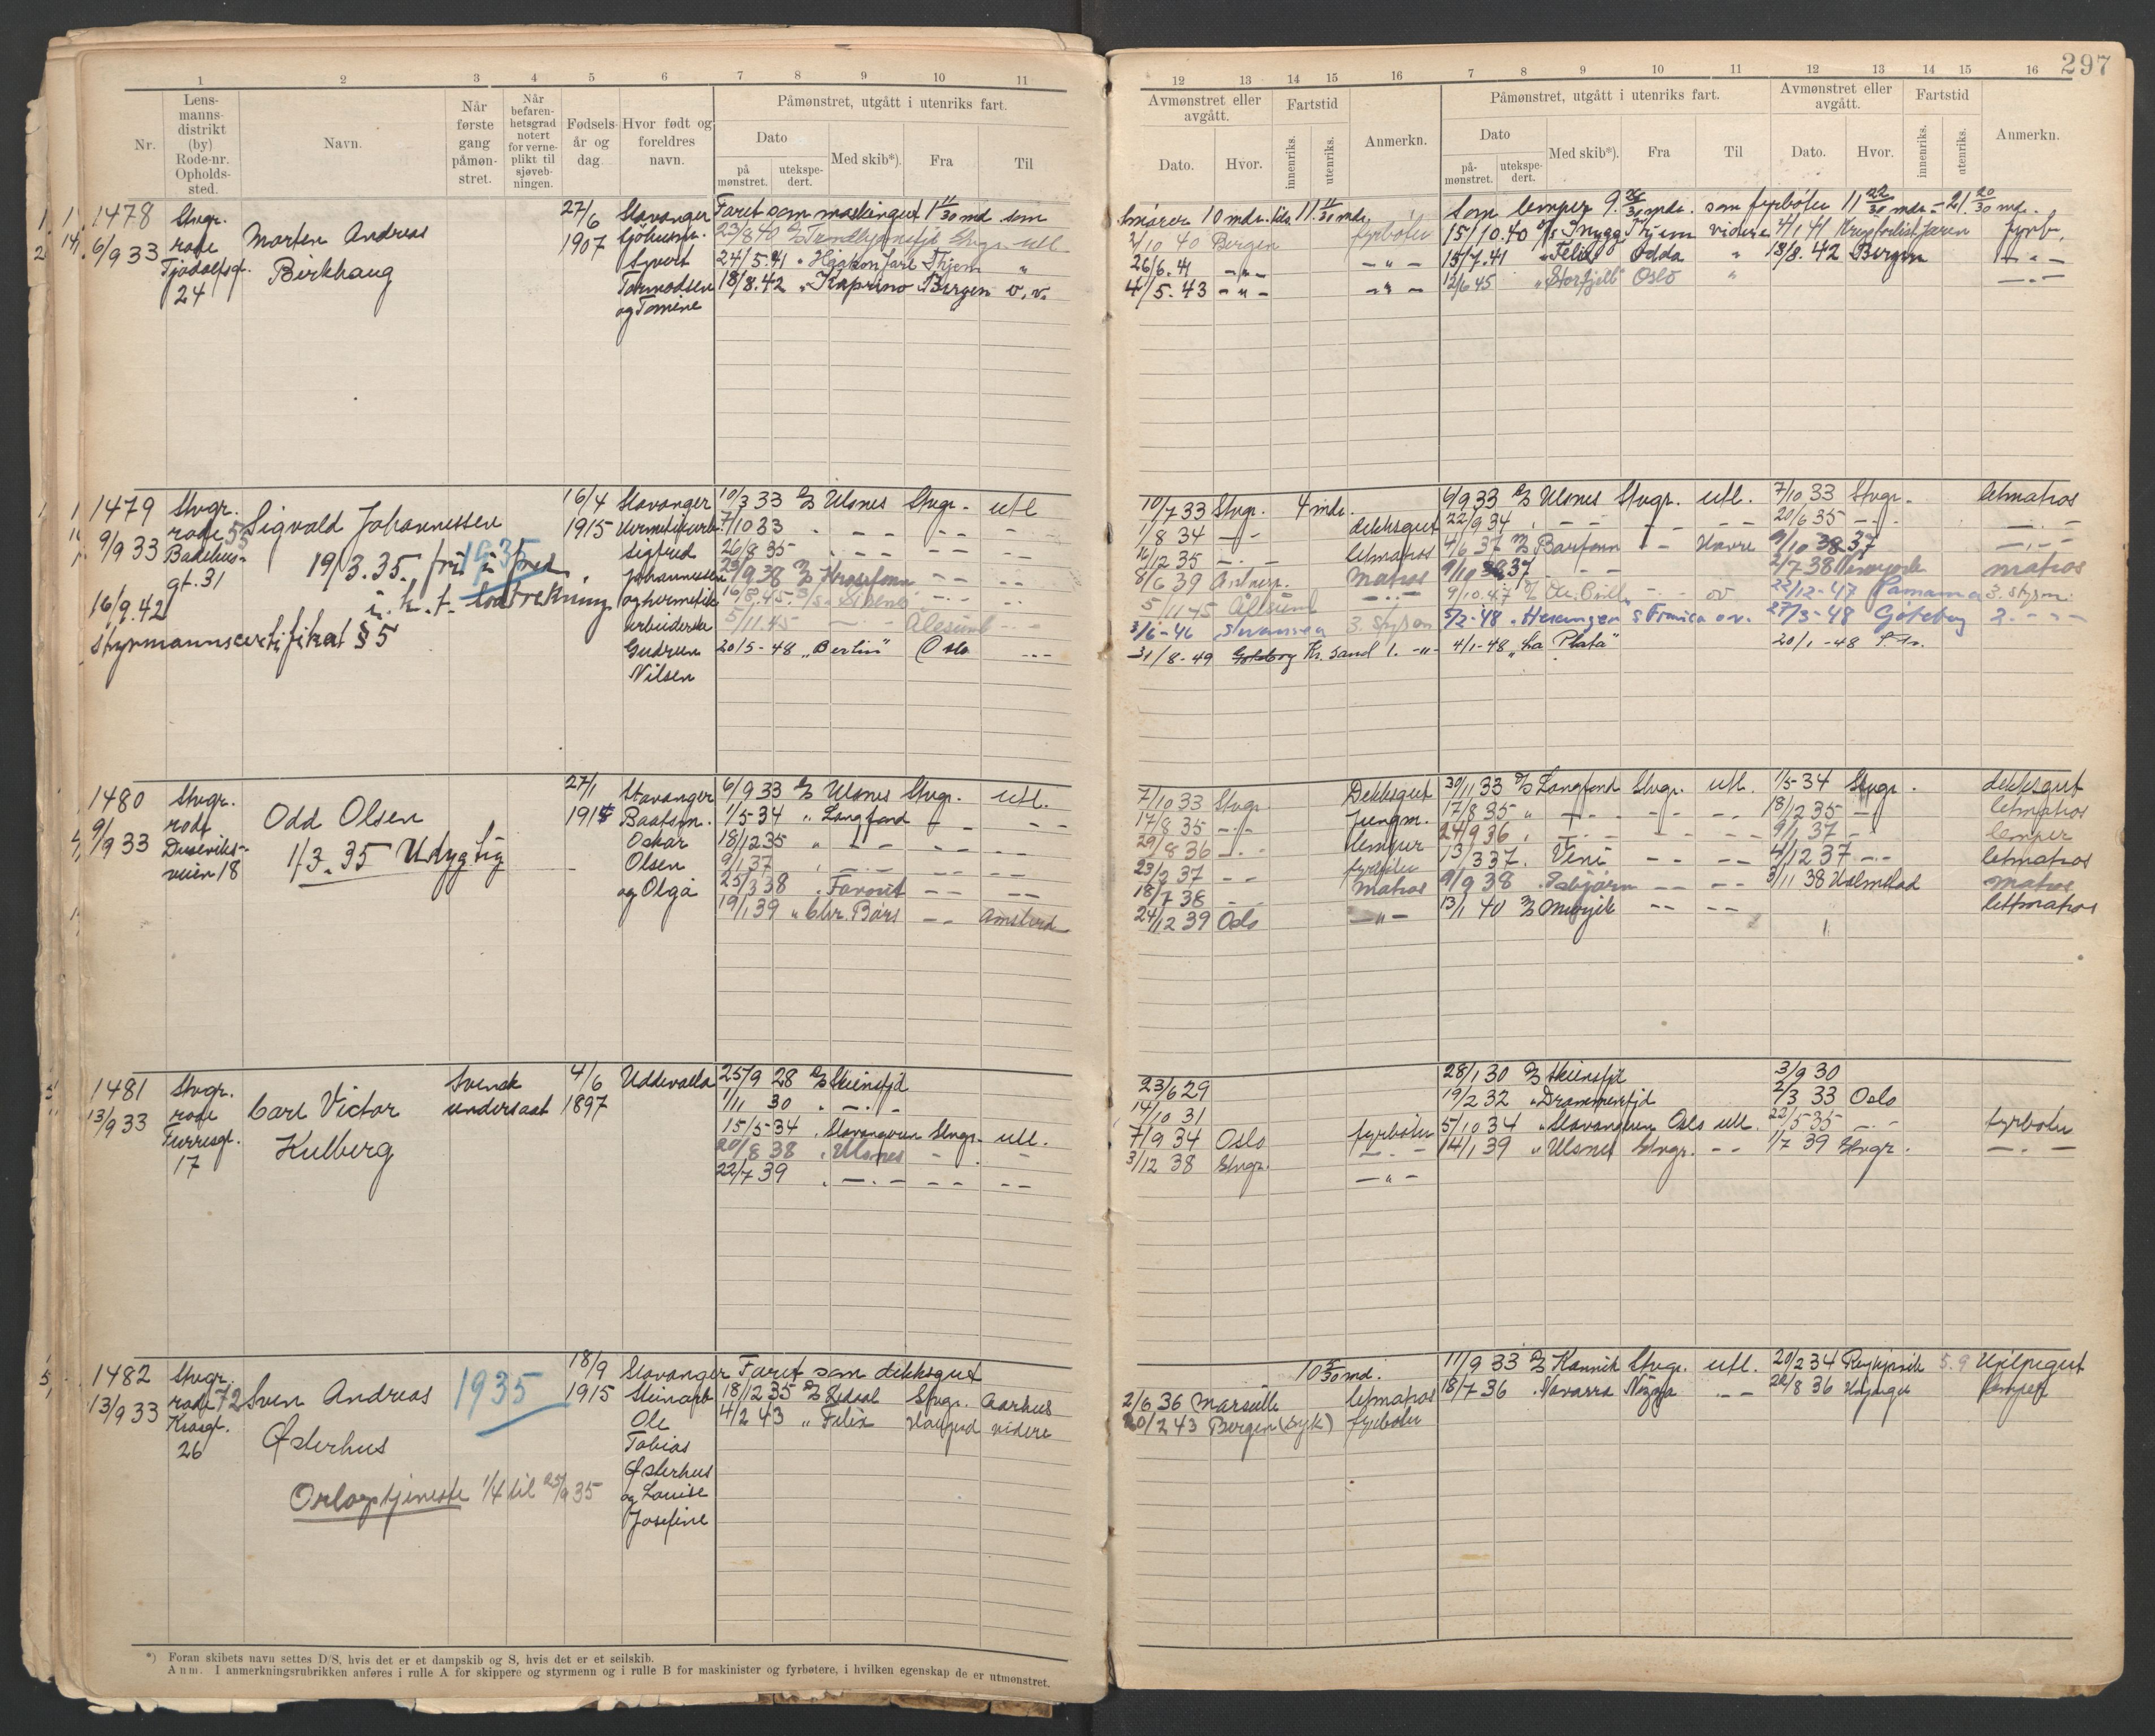 297
1 2 3 4 5 6 7 8 9 10 11
12 13 14 15 16 7 8 9 10 11 12 13 14 15 16
Nr.
Lens-
manns-
distrikt
(by)
Rode-nr.
Opholds-
sted.
Navn.
Når
første
gang
påmøn-
stret.
Når
befaren-
hetsgrad
notert
for verne-
plikt til
sjøveb-
ningen.
Fødsels-
år og
dag.
Hvor født og
foreldres
navn.
Påmønstret, utgått i utenriks fart.
Dato
på
mønstret.
utekspe-
dert.
Med skib*).
Fra
Til
Avmønstret eller
avgått.
Dato.
Hvor.
Fartstid
innenriks.
utenriks.
Anmerkn.
Påmønstret, utgått i utenriks fart.
Dato
på-
mønstret.
utekspe-
dert.
Med skib*).
Fra
Til
Avmønstret eller
avgått.
Dato.
Hvor.
Fartstid
innenriks.
utenriks.
Anmerkn.
1478
6/9 33
Stvgr.
rode
Tjodolfsgt.
24
Morten Andreas
Birkhaug
27/6
1907
Stavanger
Sjøhusm.
Syvert
Tormodsen
og Tomine
Faret som maskingut 1 11/30 md som
23/8 40 Stvgr. utl.
24/5.41 " Haakon Jarl Thjem "
18/8.42 " Kaprino Bergen o.v.
Smører 10 mdr. 11 11/30 mdr. Som lemper 9. 26/30 mdr. som fyrbøter 11 22/30 mdr. = 21. 20/30 md.
2/10 40 Bergen fyrbøter 15/10.40 D/S Snygg Thjem videre 4/1 41 fyrb.
26/6.41 - " - - " - 15/7.41 " Felix Odda " 18/8.42 Bergen - " -
4/5.43 - " - - " - 12/6 45 "Storfjell" Oslo " - " -
1479
9/9 33
Stvgr.
rode 53
Badehus-
gt. 31
Sigvald Johannessen
1935
19/3.35. fri i fred
i. h. t. loddtrekning
16/9.42
styrmannscertifikat §5
16/4
1915
Stavanger
Hermetikarb.
Sigfred
Johannessen
og hermetik
arbeiderske
Gudrun
Nilsen
10/3 33 D/S Ulsnes Stvgr. utl
7/10 33 " - - - - - -
26/8 35 " - - - - - -
23/9 38 D/S Krossfonn - - - -
16/8.45.
5/11.45 - " - Ålesund - " -
20/5-48 "Berlin" Oslo - " -
10/7 33 Stvgr. 4 mdr. 6/9 33 D/S Ulsnes Stvgr. utl. 7/10 33 Stvgr. letmatros
1/8 34 - " - dekksgut 22/9 34 " - - - - - - 20/6 35 - " - - " -
16/12 35 - " - letmatros 4/6 37 M/S Barfonn - - Havre 9/10 38 37 - " -
8/6 39 Antwerp. Matros 9/10 38 37 - - - 2/7 38 matros
5/11 45 Ålesund - " - 9/10.47 - " - ov 22/12-47 Panama 3. styrm.
3/6-46 Swansea 3. styrm 5/2-48 "Heranger S Francisco o.v. 27/3-48 Gøteborg 2. - " -
31/8-49 Gøteborg Kr.sand 1. - " - 4/1-48 "La Plata" 20/1-48
1480
9/9 33
Stvgr.
rode
Duseviks-
veien 18
Odd Olsen
1/3.35 Udygtig
27/1
1915
Stavanger
Baatsm.
Oskar
Olsen
og Olga
6/9 33 D/S Ulsnes Stvgr. utl.
1/5-34 " Langfond - - - -
18/12 35 " - - - - - -
9/1 37 " - - - - - -
25/3 38 " Favorit - - - -
19/1 39 " Chr. Børs - - Amsterd
7/10 33 Stvgr. Dekksgut 30/11 33 D/S Langfond Stvgr. utl. 1/5-34 Stvgr. dekksgut
17/8 35 - " - Jungm. 17/8 35 " - - - - - 18/12 35 - " - letmatros
29/8 36 - " - lemper 24/9 36 " - - - - - 9/1 37 - " - lemper
23/2 37 - - fyrbøter 13/3 37. Veni - - - - 4/12 37 - - letmatros
18/7 38 - - matros 9/9 38 - - - - 3/11 38 Halmstad matros
24/12 39 Oslo - " - 13/1 40 - - - - lettmatros
1481
13/9 33
Stvgr.
rode
Furresgt.
17
Carl Victor
Kulberg
Svensk
undersaat
4/6
1897
Uddevalla
25/9 28 D/S Skiensfjd
1/11 30 " - " -
15/5-34 " Stavangeren Stvgr. utl.
20/8 38 " Ulsnes - -
22/7 39 " - " - - - - -
23/6 29 28/1 30 D/S Skiensfjd 3/9 30
14/10 31 19/2 32 " Drammensfjd 2/3 33 Oslo
7/9 34 Oslo fyrbøter 5/10 34 " Stavangeren Oslo utl. 22/5-35 - " - fyrbøter
3/12 38 Stvgr. - " - 14/1 39 " Ulsnes Stvgr. - - 1/7 39 Stvgr. - " -
- " -
1482
13/9 33
Stvgr.
rode 72
Kirkegt.
26
Sven Andreas
Østerhus
1935
Orlogstjeneste 1/4 til 25/9 35
18/9
1915
Stavanger
Steinarb
Ole
Tobias
Østerhus
og Louise
Josefine
Faret som dekksgut
18/12 35 D/S Sedaal Stvgr. Aarhus
4/2 43 " Felix Haugesund videre
10 5/30 md. 11/9 33 D/S Kannik Stvgr. utl. 20/2 34 Reykjavik 5.9 Hjelpegut
2/6 36 Marseille letmatros 18/7 36 " Navarra - - 22/8 36 lemper
20/2 43 Bergen (Syk) fyrbøter
*) Foran skibets navn settes D/S, hvis det er et dampskib og S, hvis det er et seilskib.
Anm. I anmerkningsrubrikken anføres i rulle A for skippere og styrmenn og i rulle B for maskinister og fyrbøtere, i hvilken egenskap de er utmønstret.